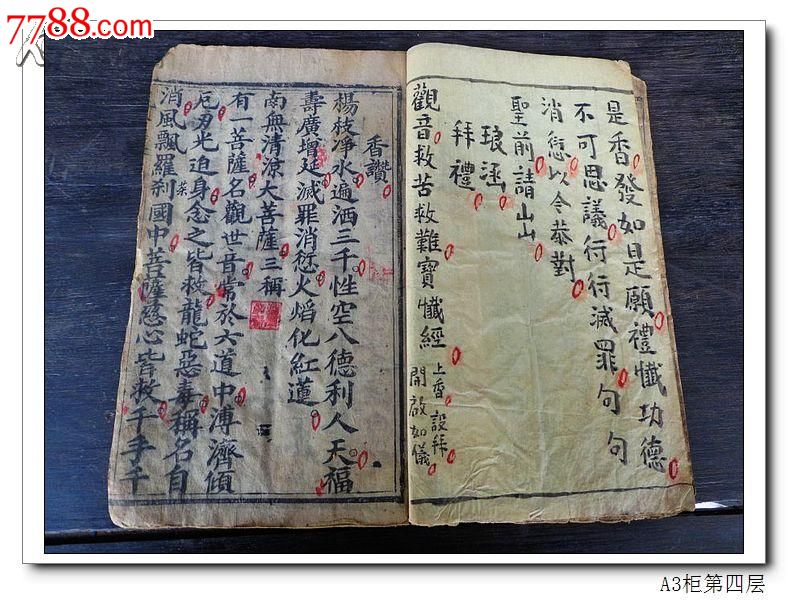 7788.com
是香發如是願禮懺功德
不可思議行行滅罪句句
消愆以今恭對
聖前請山山
琅函
拜禮
觀音救苦救難寶懺經
上香設拜
開啟如儀
香讚
楊枝净水遍洒三千性空八德利人天福
壽廣增延滅罪消愆火焰化紅蓮
南無清涼大菩薩三稱
有一菩薩名觀世音常於六道中溥濟傾
厄刃光迫身念之皆救龍蛇惡毒稱名自
消風飄羅刹國中菩薩慈心皆救千手千
A3柜第四层